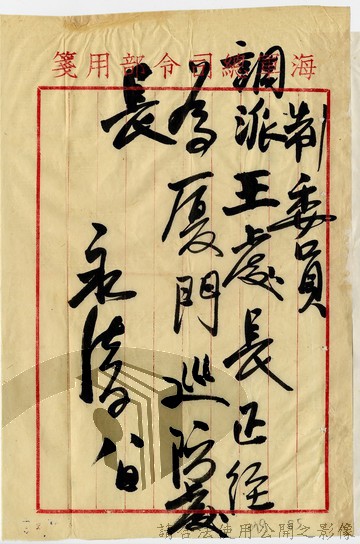 海軍總司令部用箋
制委員
調派王處長正經
為厦門巡防處
長
永清八日
請合法使用公開之影像